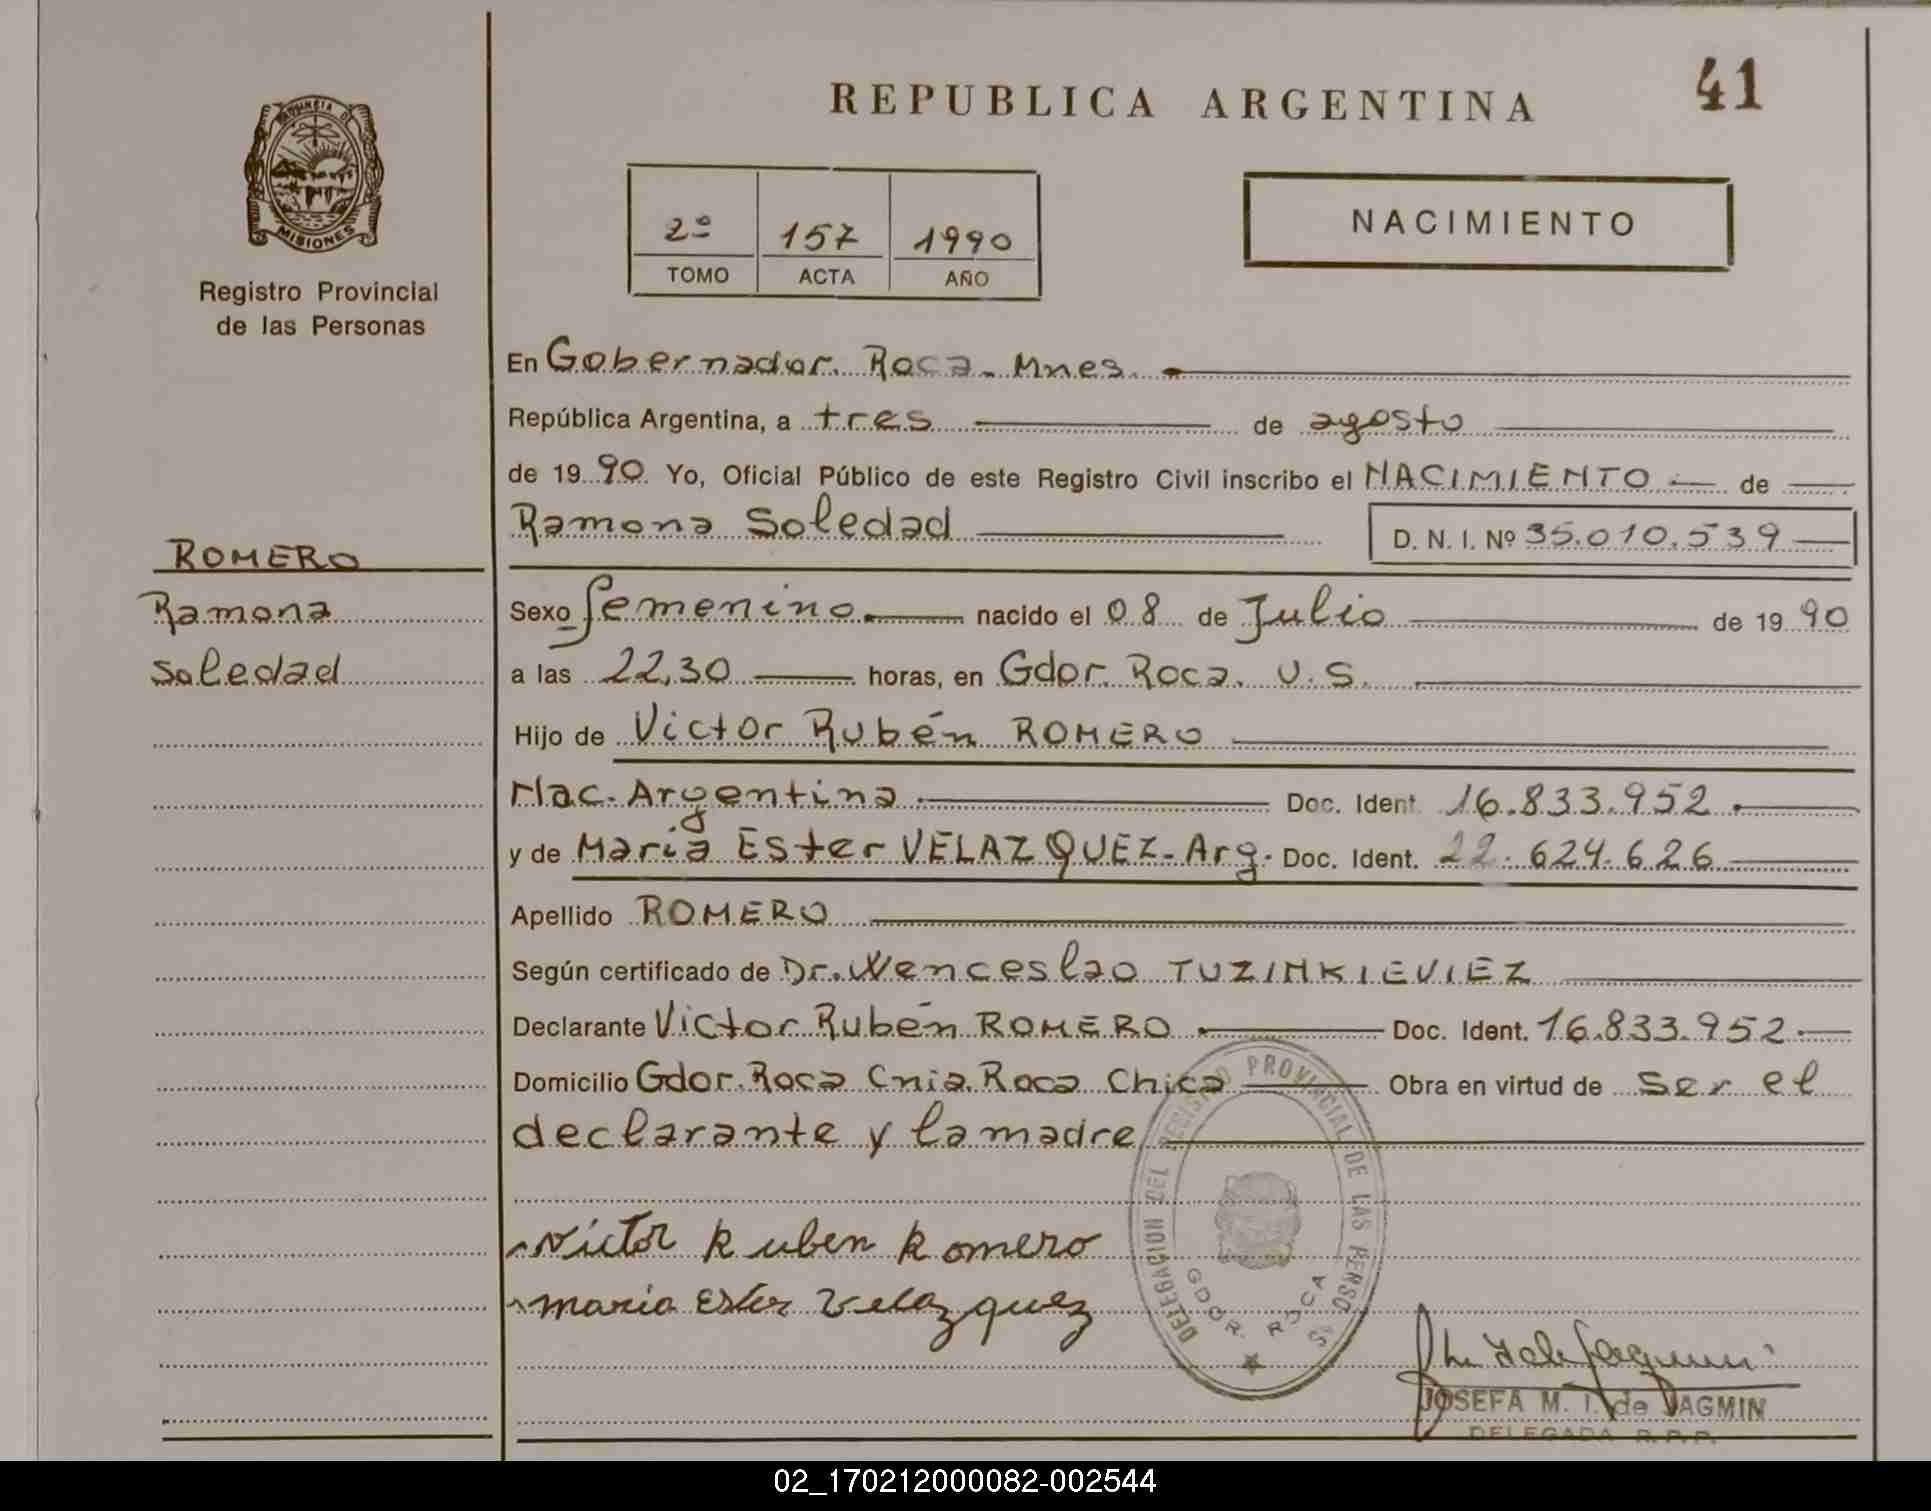 REPUBLICA ARGENTINA
41
PROVINCIA DE
MISIONES
Registro Provincial
de las Personas
2º 157 1990
TOMO ACTA AÑO
NACIMIENTO
En Gobernador Roca - Mnes.
República Argentina, a tres de agosto
de 19 90 Yo, Oficial Público de este Registro Civil inscribo el NACIMIENTO de
Ramona Soledad D. N. I. Nº 35.010.539
ROMERO
Ramona
Soledad
Sexo femenino nacido el 08 de Julio de 19 90
a las 22,30 horas, en Gdor. Roca. U.S.
Hijo de Victor Rubén ROMERO
Nac. Argentina Doc. Ident. 16.833.952.
y de María Ester VELAZQUEZ - Arg. Doc. Ident. 22.624.626
Apellido ROMERO
Según certificado de Dr. Wenceslao TUZINKIEVIEZ
Declarante Victor Rubén ROMERO Doc. Ident. 16.833.952
Domicilio Gdor. Roca Cnia. Roca Chica Obra en virtud de ser el
declarante y la madre
victor Ruben Romero
maria Ester Velazquez
DELEGACION DEL REGISTRO PROVINCIAL DE LAS PERSONAS
GDOR. ROCA
JOSEFA M. I. de JAGMIN
DELEGADA R.P.P.
02_170212000082-002544